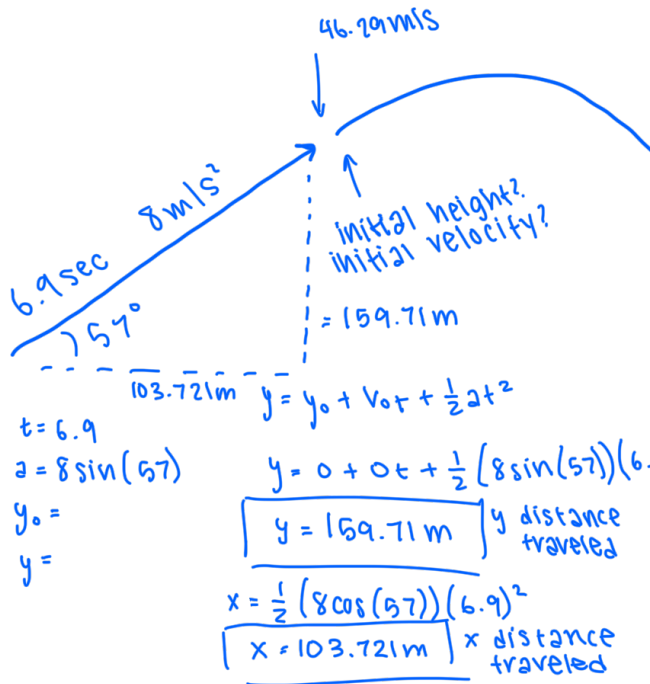 46.29m/s
8m/s²
6.9sec
57°
initial height?
initial velocity?
= 159.71m
103.721m
y = y₀ + v₀t + ½at²
t = 6.9
a = 8sin(57)
y₀ =
y =
y = 0 + 0t + ½(8sin(57))(6.
y = 159.71m
y distance
traveled
x = ½(8cos(57))(6.9)²
x = 103.721m
x distance
traveled